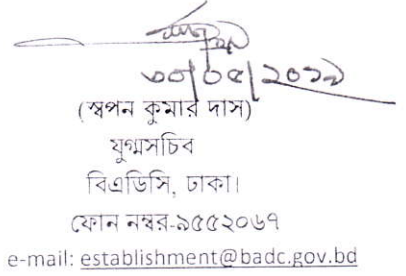 ৩০/০৫/২০১৯
(স্বপন কুমার দাস)
যুগ্মসচিব
বিএডিসি, ঢাকা।
ফোন নম্বর-৯৫৫২০৬৭
e-mail: establishment@badc.gov.bd